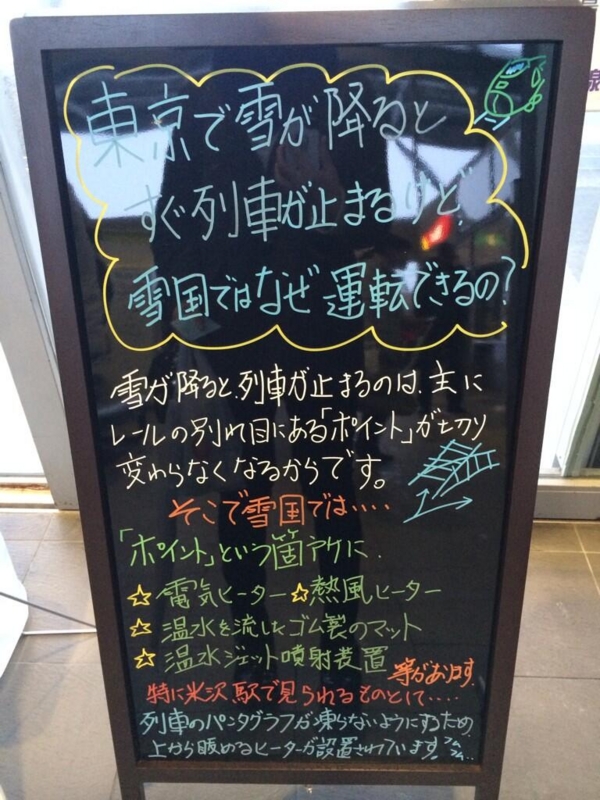 東京で雪が降ると
すぐ列車が止まるけど、
雪国ではなぜ運転できるの?
雪が降ると、列車が止まるのは、主に
レールの別れ目にある「ポイント」が切り
変わらなくなるからです。
そこで雪国では・・・・
「ポイント」という箇所に、
☆電気ヒーター ☆熱風ヒーター
☆温水を流したゴム製のマット
☆温水ジェット噴射装置 等があります。
特に米沢駅で見られるものとして・・・・・
列車のパンタグラフが凍らないようにするため、
上から暖めるヒーターが設置されています。